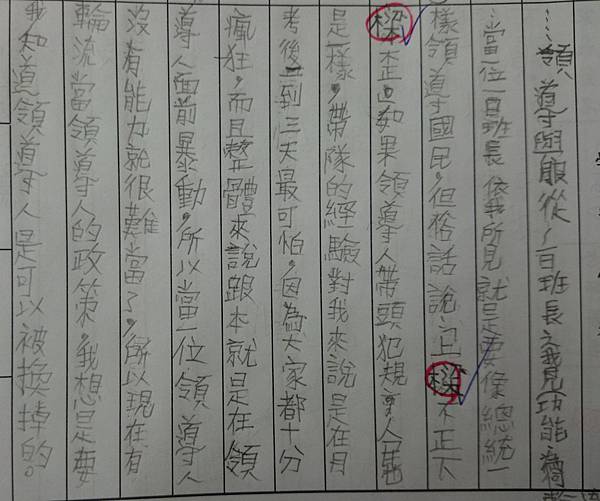 ……領導與服從～百班長之我見功能、
當一位百班長依我所見就是要像總統一
樣領導國民,但俗話說:上樑不正下
樑歪,如果領導人帶頭犯規,人
是一樣,帶隊的經驗對我來說是在月
考後一到三天最可怕,因為大家都十分
瘋狂,而且整體來說跟本就是在領
導人面前暴動,所以當一位領導人
沒有能力就很難當了,所以現在有
輪流當領導人的政策,我想是要
我知道領導人是可以被換掉的。